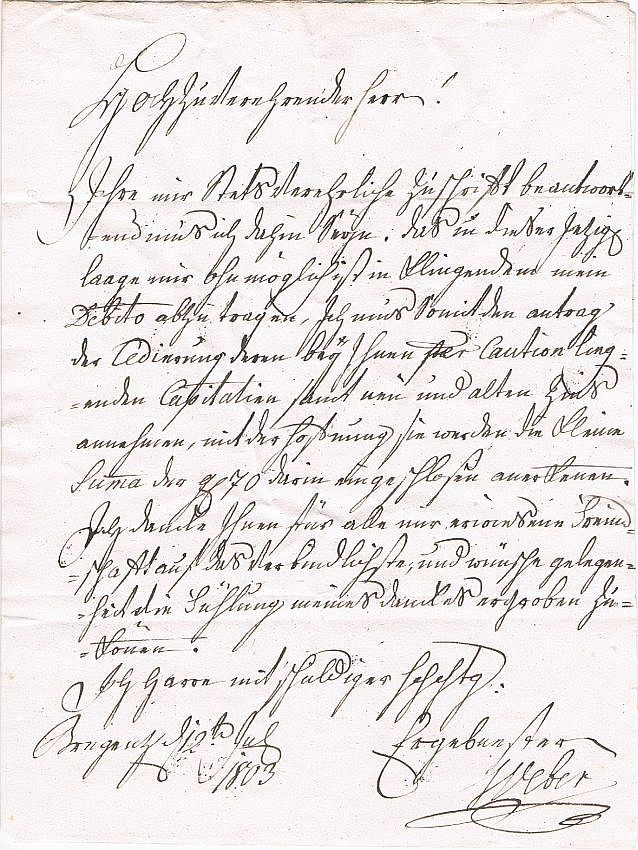 Hochzuverehrender Herr!
Ihre mir Stets verehrliche Zuschrift beantwort-
-tend mus ich dahin Seyn. das in dieser Jezig
laage mir ohnmöglich ist in Klingendem mein
Debito abzutragen, Ich mus Somit den antrag
der Cedierung deren bey Ihnen per Caution lieg-
-enden Capitalien samt neu und alten Zins
annehmen, mit der Hoffnung sie werden die Kleine
Suma der 70 darin eingeschlosen anerkenen.
Ich dancke Ihnen für alle mir erwiesene Freund-
-schaft auf das verbindlichste, und wünsche gelegen-
-heit die Fühlung meines danckes erproben zu-
-könen.
Ich Harre mit schuldiger Hchchtg.
Bregenz d 12te Jul
1803
Ergebnester
Weber